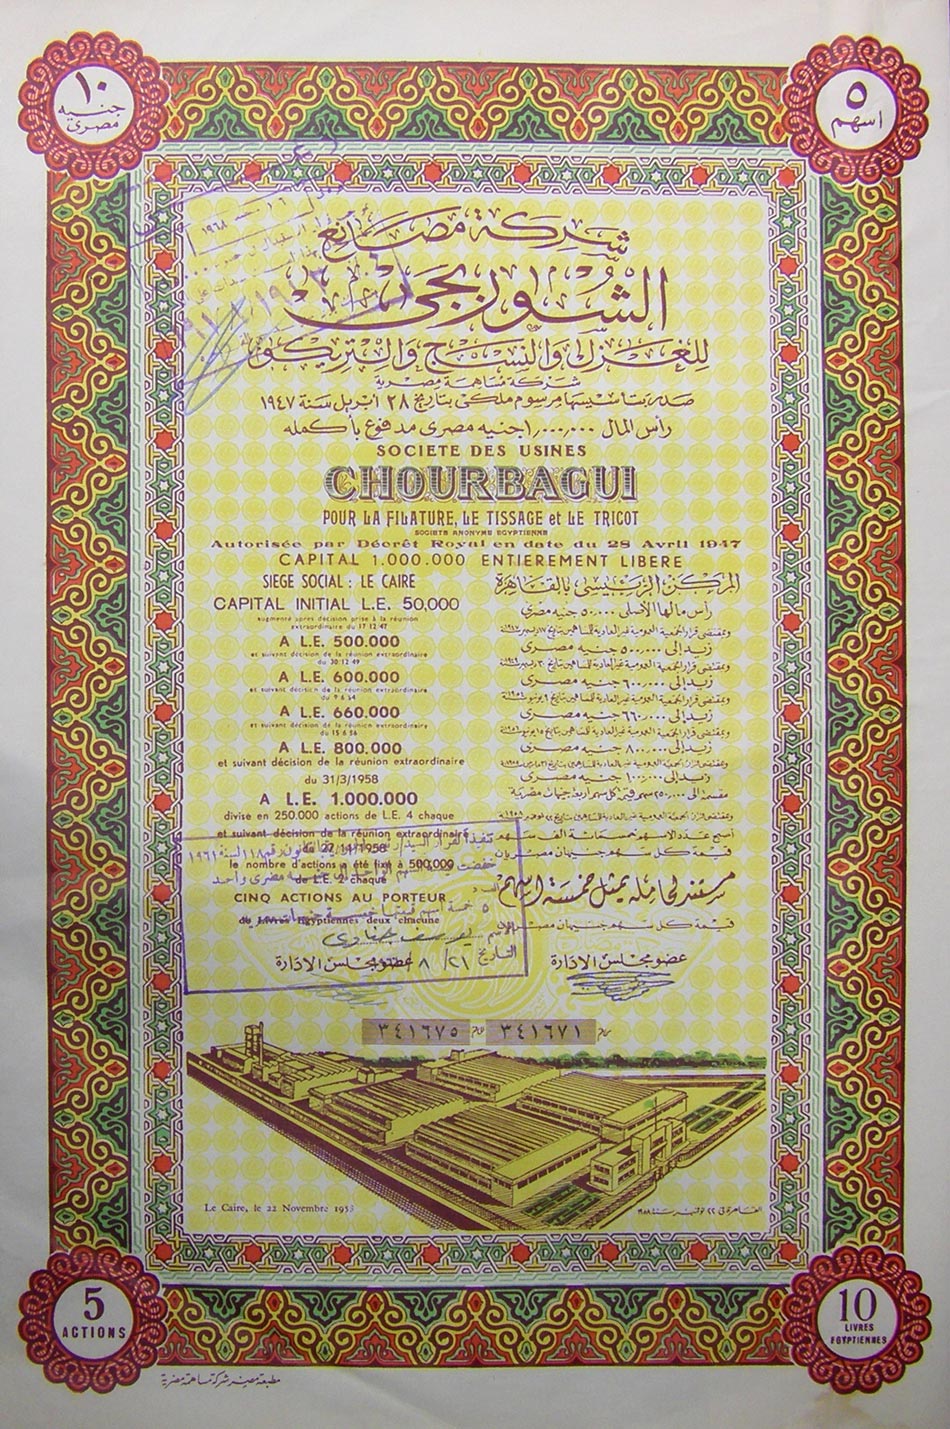 ١٠
جنيه
مصرى
٥
اسهم
شركة مصانع
الشوربجى
للغزل والنسيج والتريكو
شركة مساهمة مصرية
صدر بتأسيسها مرسوم ملكى بتاريخ ٢٨ ابريل سنة ١٩٤٧
رأس المال ١٫٠٠٠٫٠٠٠ جنيه مصرى مدفوع بأكمله
SOCIETE DES USINES
CHOURBAGUI
POUR LA FILATURE, LE TISSAGE et LE TRICOT
SOCIETE ANONYME EGYPTIENNE
Autorisée par Décret Royal en date du 28 Avril 1947
CAPITAL 1.000.000 ENTIEREMENT LIBERE
SIEGE SOCIAL : LE CAIRE
CAPITAL INITIAL L.E. 50,000
augmenté après décision prise à la réunion
extraordinaire du 17 12 47
A L.E. 500.000
et suivant décision de la réunion extraordinaire
du 30 12 49
A L.E. 600.000
et suivant décision de la réunion extraordinaire
du 9 6 54
A L.E. 660.000
et suivant décision de la réunion extraordinaire
du 15 6 56
A L.E. 800.000
et suivant décision de la réunion extraordinaire
du 31/3/1958
A L.E. 1.000.000
divisé en 250.000 actions de L.E. 4 chaque
et suivant décision de la réunion extraordinaire
du 27/11/1958
le nombre d'actions a été fixé à 500,000
de L.E. 2 chaque
CINQ ACTIONS AU PORTEUR
de Livres Egyptiennes deux chacune
المركز الرئيسى بالقاهرة
رأس مالها الأصلى ٥٠٫٠٠٠ جنيه مصرى
زيد إلى ٥٠٠٫٠٠٠ جنيه مصرى
زيد إلى ٦٠٠٫٠٠٠ جنيه مصرى
زيد إلى ٦٦٠٫٠٠٠ جنيه مصرى
زيد إلى ٨٠٠٫٠٠٠ جنيه مصرى
زيد إلى ١٫٠٠٠٫٠٠٠ جنيه مصرى
مقسمة الى ٢٥٠٫٠٠٠ سهم قيمة كل سهم اربعة جنيهات مصرية
أصبح عدد الاسهم خمسمائة الف سهم
قيمة كل سهم جنيهان مصريان
مستند لحامله يمثل خمسة اسهم
قيمة كل سهم جنيهان مصريان
عضو مجلس الادارة
عضو مجلس الادارة
التاريخ ٢١/ ٨
٣٤١٦٧١
٣٤١٦٧٥
Le Caire, le 22 Novembre 1958
القاهرة فى ٢٢ نوفمبر سنة ١٩٥٨
5
ACTIONS
10
LIVRES
EGYPTIENNES
مطبعة مصر شركة مساهمة مصرية